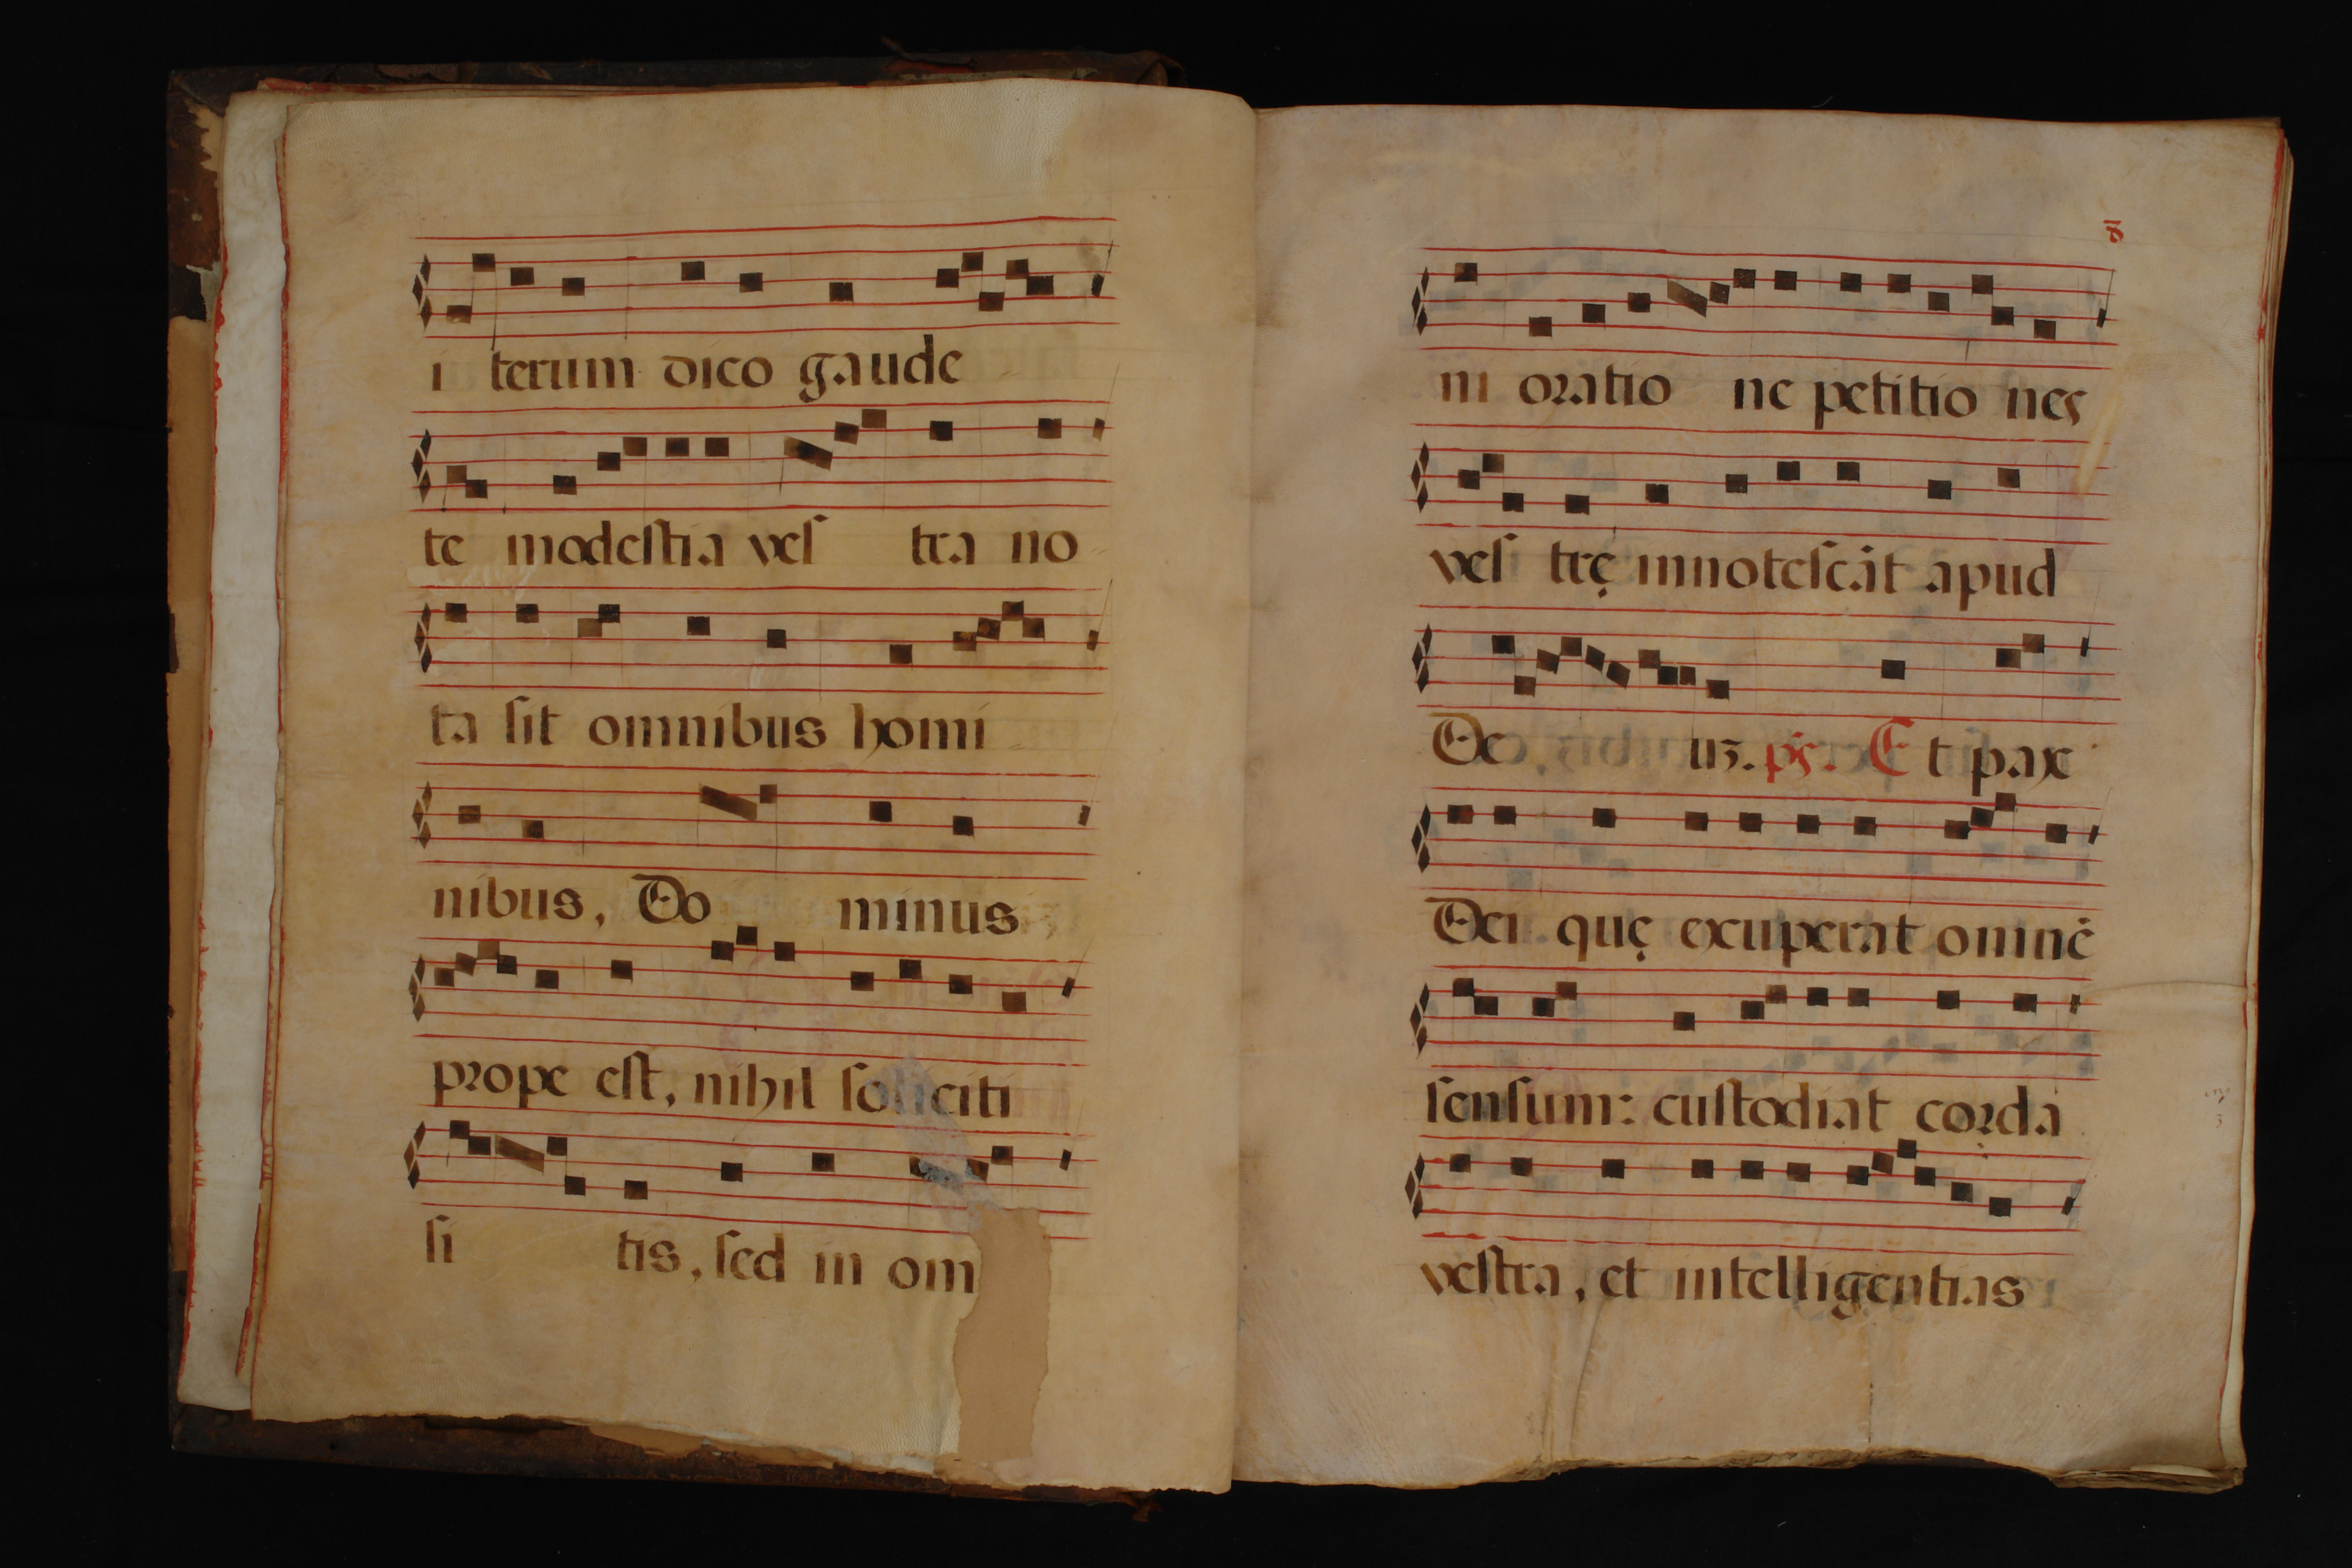 i terum dico gaude
te modeſtia veſ tra no
ta ſit omnibus homi
nibus, Do minus
prope eſt, nihil ſoliciti
ſi tis, ſed in om
8
ni oratio ne petitio nes
veſ trę innoteſcāt apud
De uz. ps. Et pax
Dei quę exuperat omnē
ſenſum: cuſtodiat corda
veſtra, et intelligentias